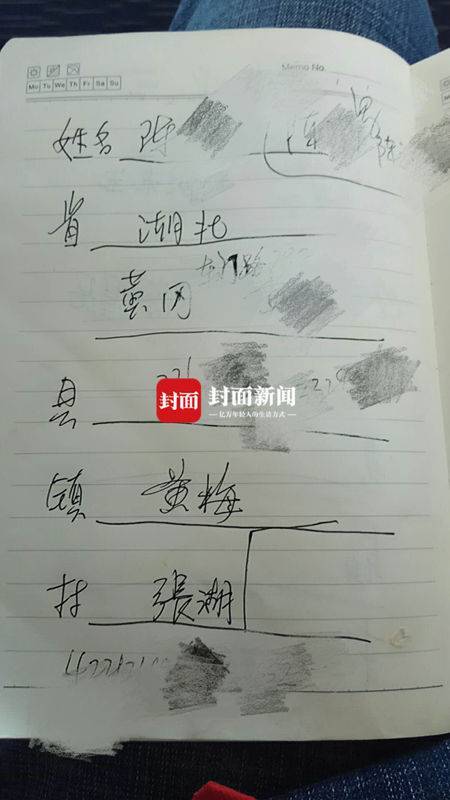 Memo No.
Mo Tu We Th Fr Sa Su
姓名 陈
省 湖北
黄冈
县
封面 封面新闻
亿万年轻人的生活方式
镇 黄梅
村 張湖